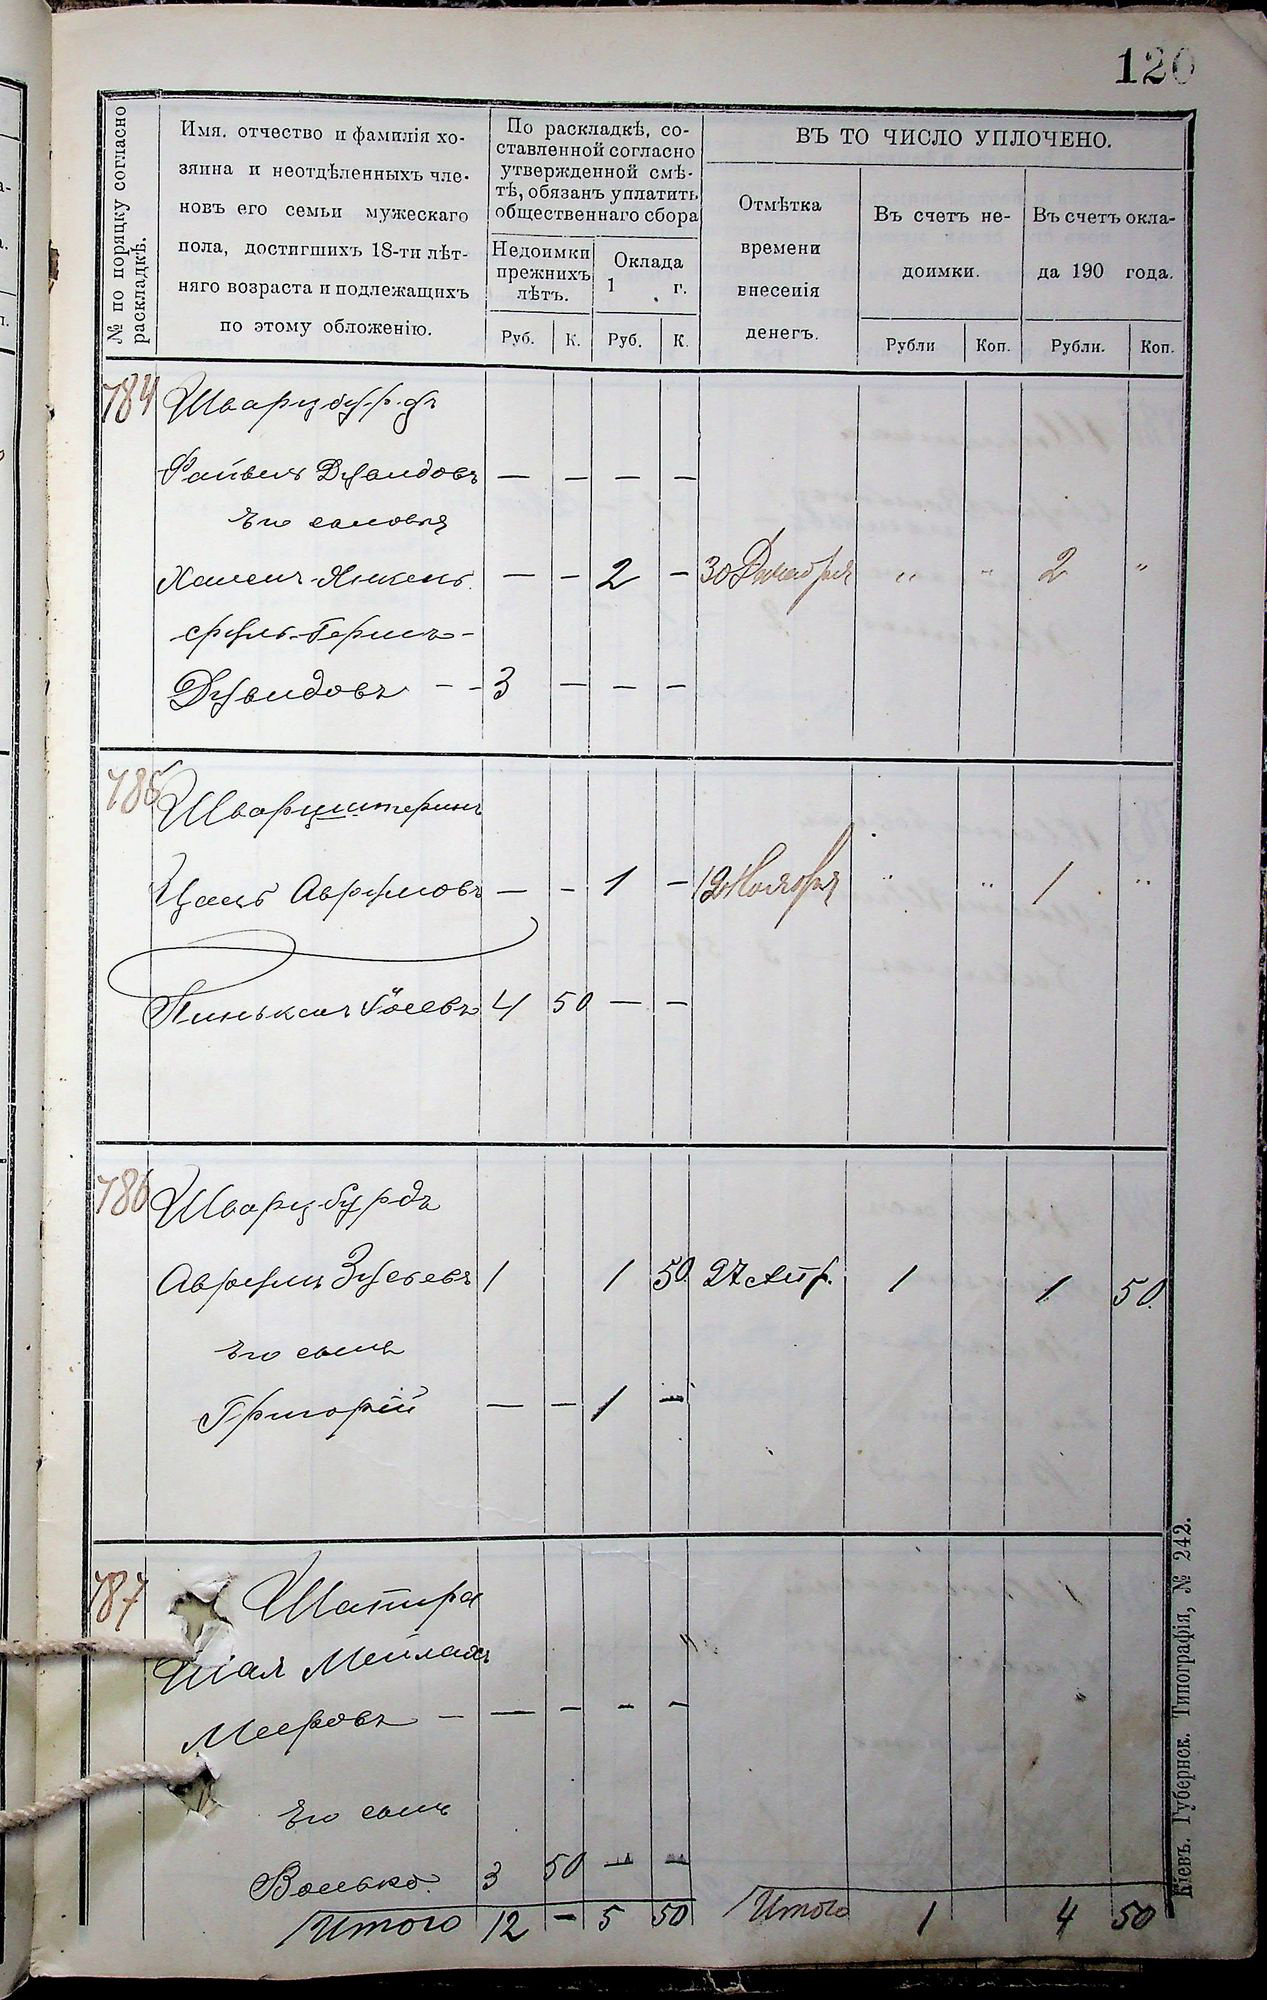 120
№ по порядку согласно раскладкѣ.
Имя, отчество и фамилія хо-
зяина и неотдѣленныхъ чле-
новъ его семьи мужескаго
пола, достигшихъ 18-ти лѣт-
няго возраста и подлежащихъ
по этому обложенію.
По раскладкѣ, со-
ставленной согласно
утвержденной смѣ-
тѣ, обязанъ уплатить
общественнаго сбора
Недоимки
прежнихъ
лѣтъ.
Оклада
1 г.
Руб. К. Руб. К.
ВЪ ТО ЧИСЛО УПЛОЧЕНО.
Отмѣтка
времени
внесенія
денегъ.
Въ счетъ не-
доимки.
Въ счетъ окла-
да 190 года.
Рубли Коп. Рубли. Коп.
784 Шварцбурдъ
Файвель Дувидовъ — — — —
Его сыновья
Хаимъ-Янкель — — 2 — 30 Декабря " " 2 "
Сруль-Гершъ-
Дувидовъ - - 3 — — —
785 Шварцштернъ
Авруmовъ — — 1 — 12 Ноября " " 1 "
Пинькасъ 4 50 — —
786 Шварцбурдъ
Аврумъ Зусьевъ 1 1 50 27 Апр. 1 1 50.
Его сынъ
Григорій — — 1 —
787 Шапира
Шая Мейлахъ
Мееровъ - — — — —
Его сынъ
Волько. 3 50 — —
Итого 12 — 5 50 Итого 1 4 50
Кіевъ. Губернск. Типографія, № 242.